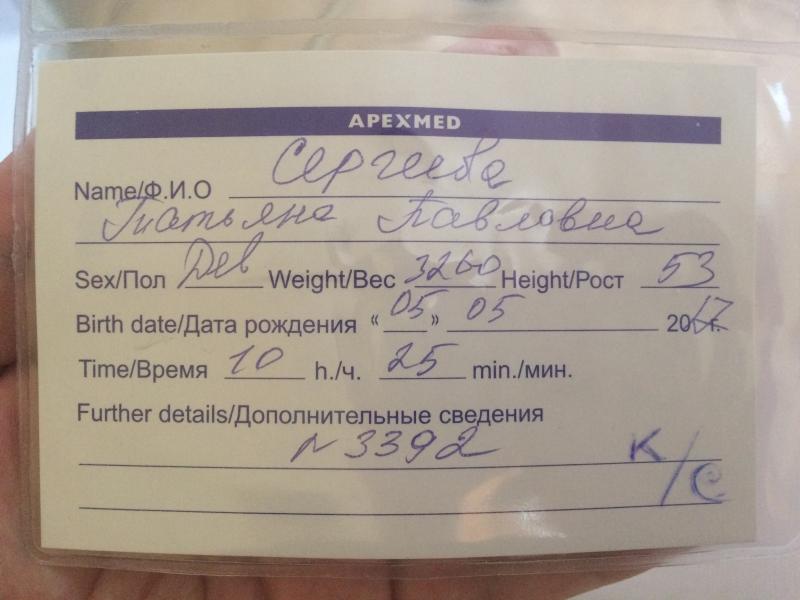 APEXMED
Name/Ф.И.О Сергеева
Татьяна Павловна
Sex/Пол Дев Weight/Вес 3260 Height/Рост 53
Birth date/Дата рождения «05» 05 2017г.
Time/Время 10 h./ч. 25 min./мин.
Further details/Дополнительные сведения
N 3392 К/С